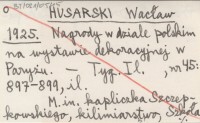 HUSARSKI Wacław
1925. Nagrody w dziale polskim
na wystawie dekoracyjnej w
Paryżu. Tyg. Il., nr 45:
897-899, il.
M. in. kapliczka Szczep-
kowskiego, kilimiarstwo, Szkoła